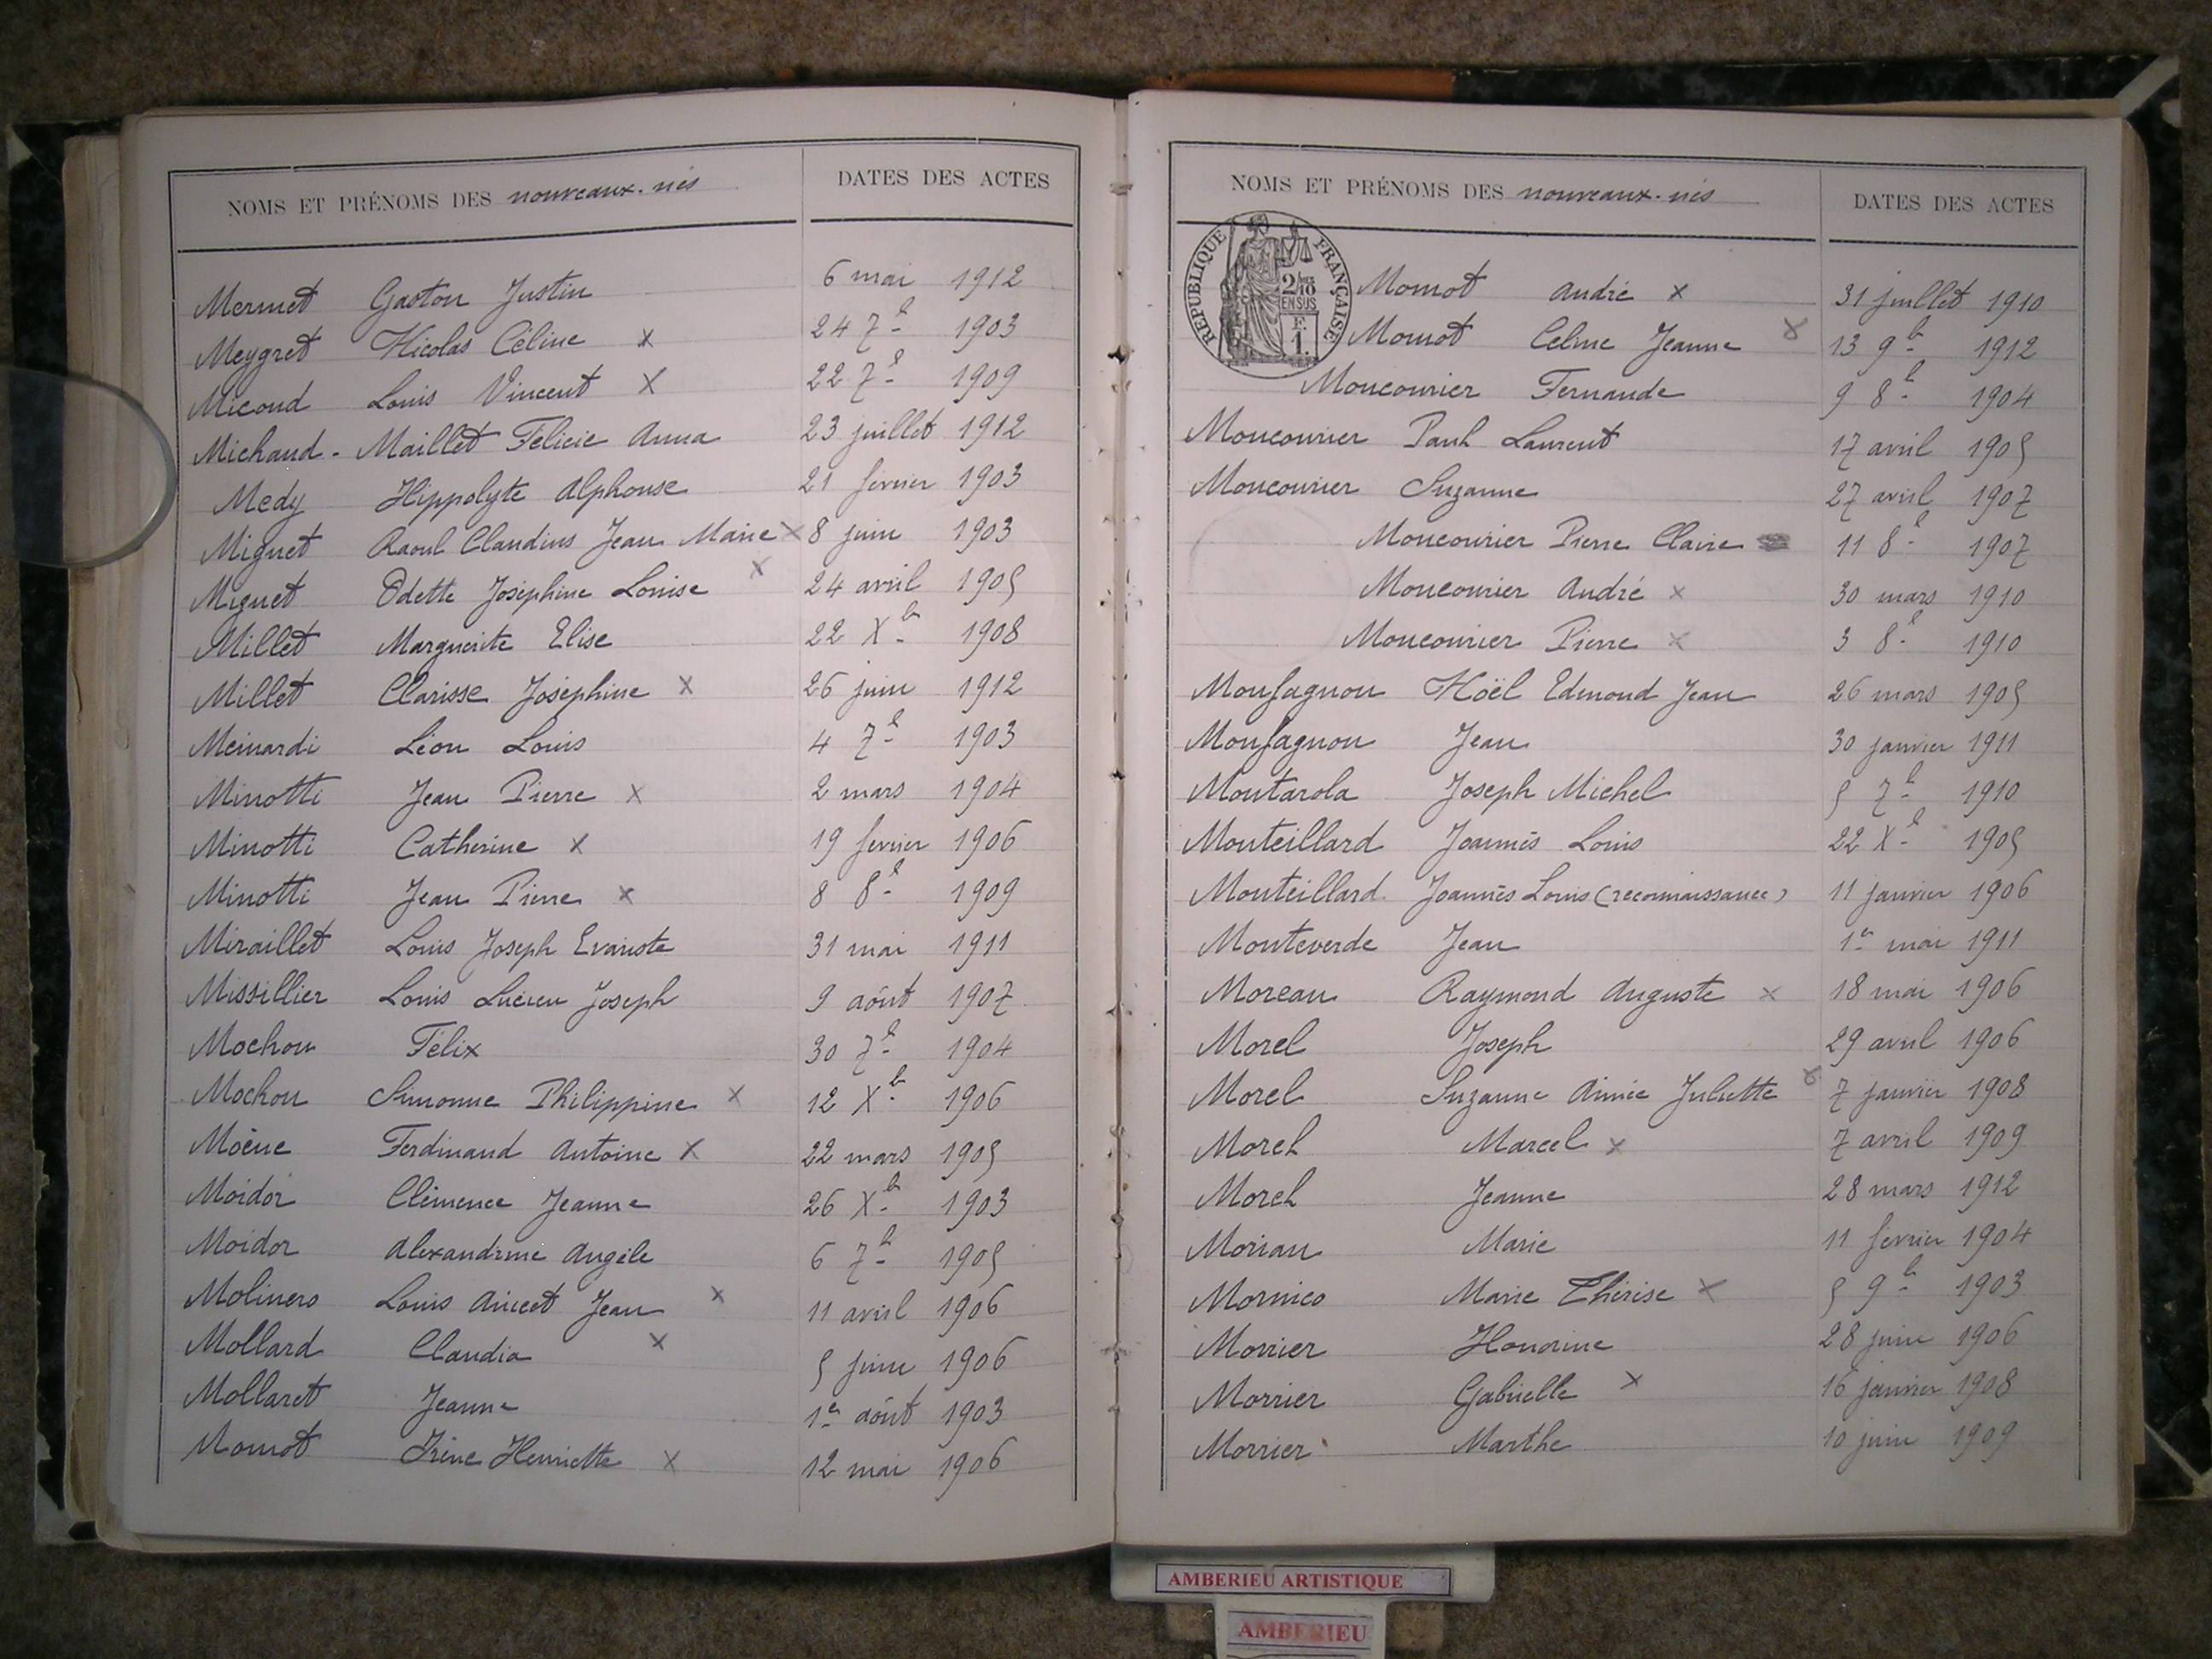 NOMS ET PRÉNOMS DES nouveaux-nés DATES DES ACTES
Mermet Gaston Justin 6 mai 1912
Meygret Nicolas Céline x 24 7b 1903
Micoud Louis Vincent x 22 7b 1909
Michaud - Maillet Félicie Anna 23 juillet 1912
Medy Hippolyte Alphonse 21 février 1903
Miguet Raoul Claudius Jean Marie x 8 juin 1903
Miguet Odette Joséphine Louise x 24 avril 1905
Millet Marguerite Elise 22 Xb 1908
Millet Clarisse Joséphine x 26 juin 1912
Meinardi Léon Louis 4 7b 1903
Minotti Jean Pierre x 2 mars 1904
Minotti Catherine x 19 février 1906
Minotti Jean Pierre x 8 8b 1909
Miraillet Louis Joseph Evariste 31 mai 1911
Missillier Louis Lucien Joseph 9 août 1907
Mochon Félix 30 7b 1904
Mochon Simonne Philippine x 12 Xb 1906
Moëne Ferdinand Antoine x 22 mars 1905
Moidor Clémence Jeanne 26 Xb 1903
Moidor Alexandrine Angèle 6 7b 1905
Molinero Louis Anicet Jean x 11 avril 1906
Mollard Claudia x 5 juin 1906
Mollaret Jeanne 1er août 1903
Momot Irène Henriette x 12 mai 1906
NOMS ET PRÉNOMS DES nouveaux-nés DATES DES ACTES
RÉPUBLIQUE FRANÇAISE
2/10 EN SUS
F. 1.
Momot André x 31 juillet 1910
Momot Celine Jeanne x 13 9b 1912
Moncourier Fernande 9 8b 1904
Moncourier Paul Laurent 17 avril 1905
Moncourier Suzanne 27 avril 1907
Moncourier Pierre Claire 11 8b 1907
Moncourier André x 30 mars 1910
Moncourier Pierre x 3 8b 1910
Monfagnon Noël Edmond Jean 26 mars 1905
Monfagnon Jean 30 janvier 1911
Montarola Joseph Michel 5 7b 1910
Monteillard Joannès Louis 22 Xb 1905
Monteillard Joannès Louis (reconnaissance) 11 janvier 1906
Monteverde Jean 1er mai 1911
Moreau Raymond Auguste x 18 mai 1906
Morel Joseph 29 avril 1906
Morel Suzanne Aimée Juliette x 7 janvier 1908
Morel Marcel x 7 avril 1909
Morel Jeanne 28 mars 1912
Morian Marie 11 février 1904
Mornico Marie Thérèse x 5 9b 1903
Morrier Honorine 28 juin 1906
Morrier Gabrielle x 16 janvier 1908
Morrier Marthe 10 juin 1909
AMBERIEU ARTISTIQUE
AMBERIEU